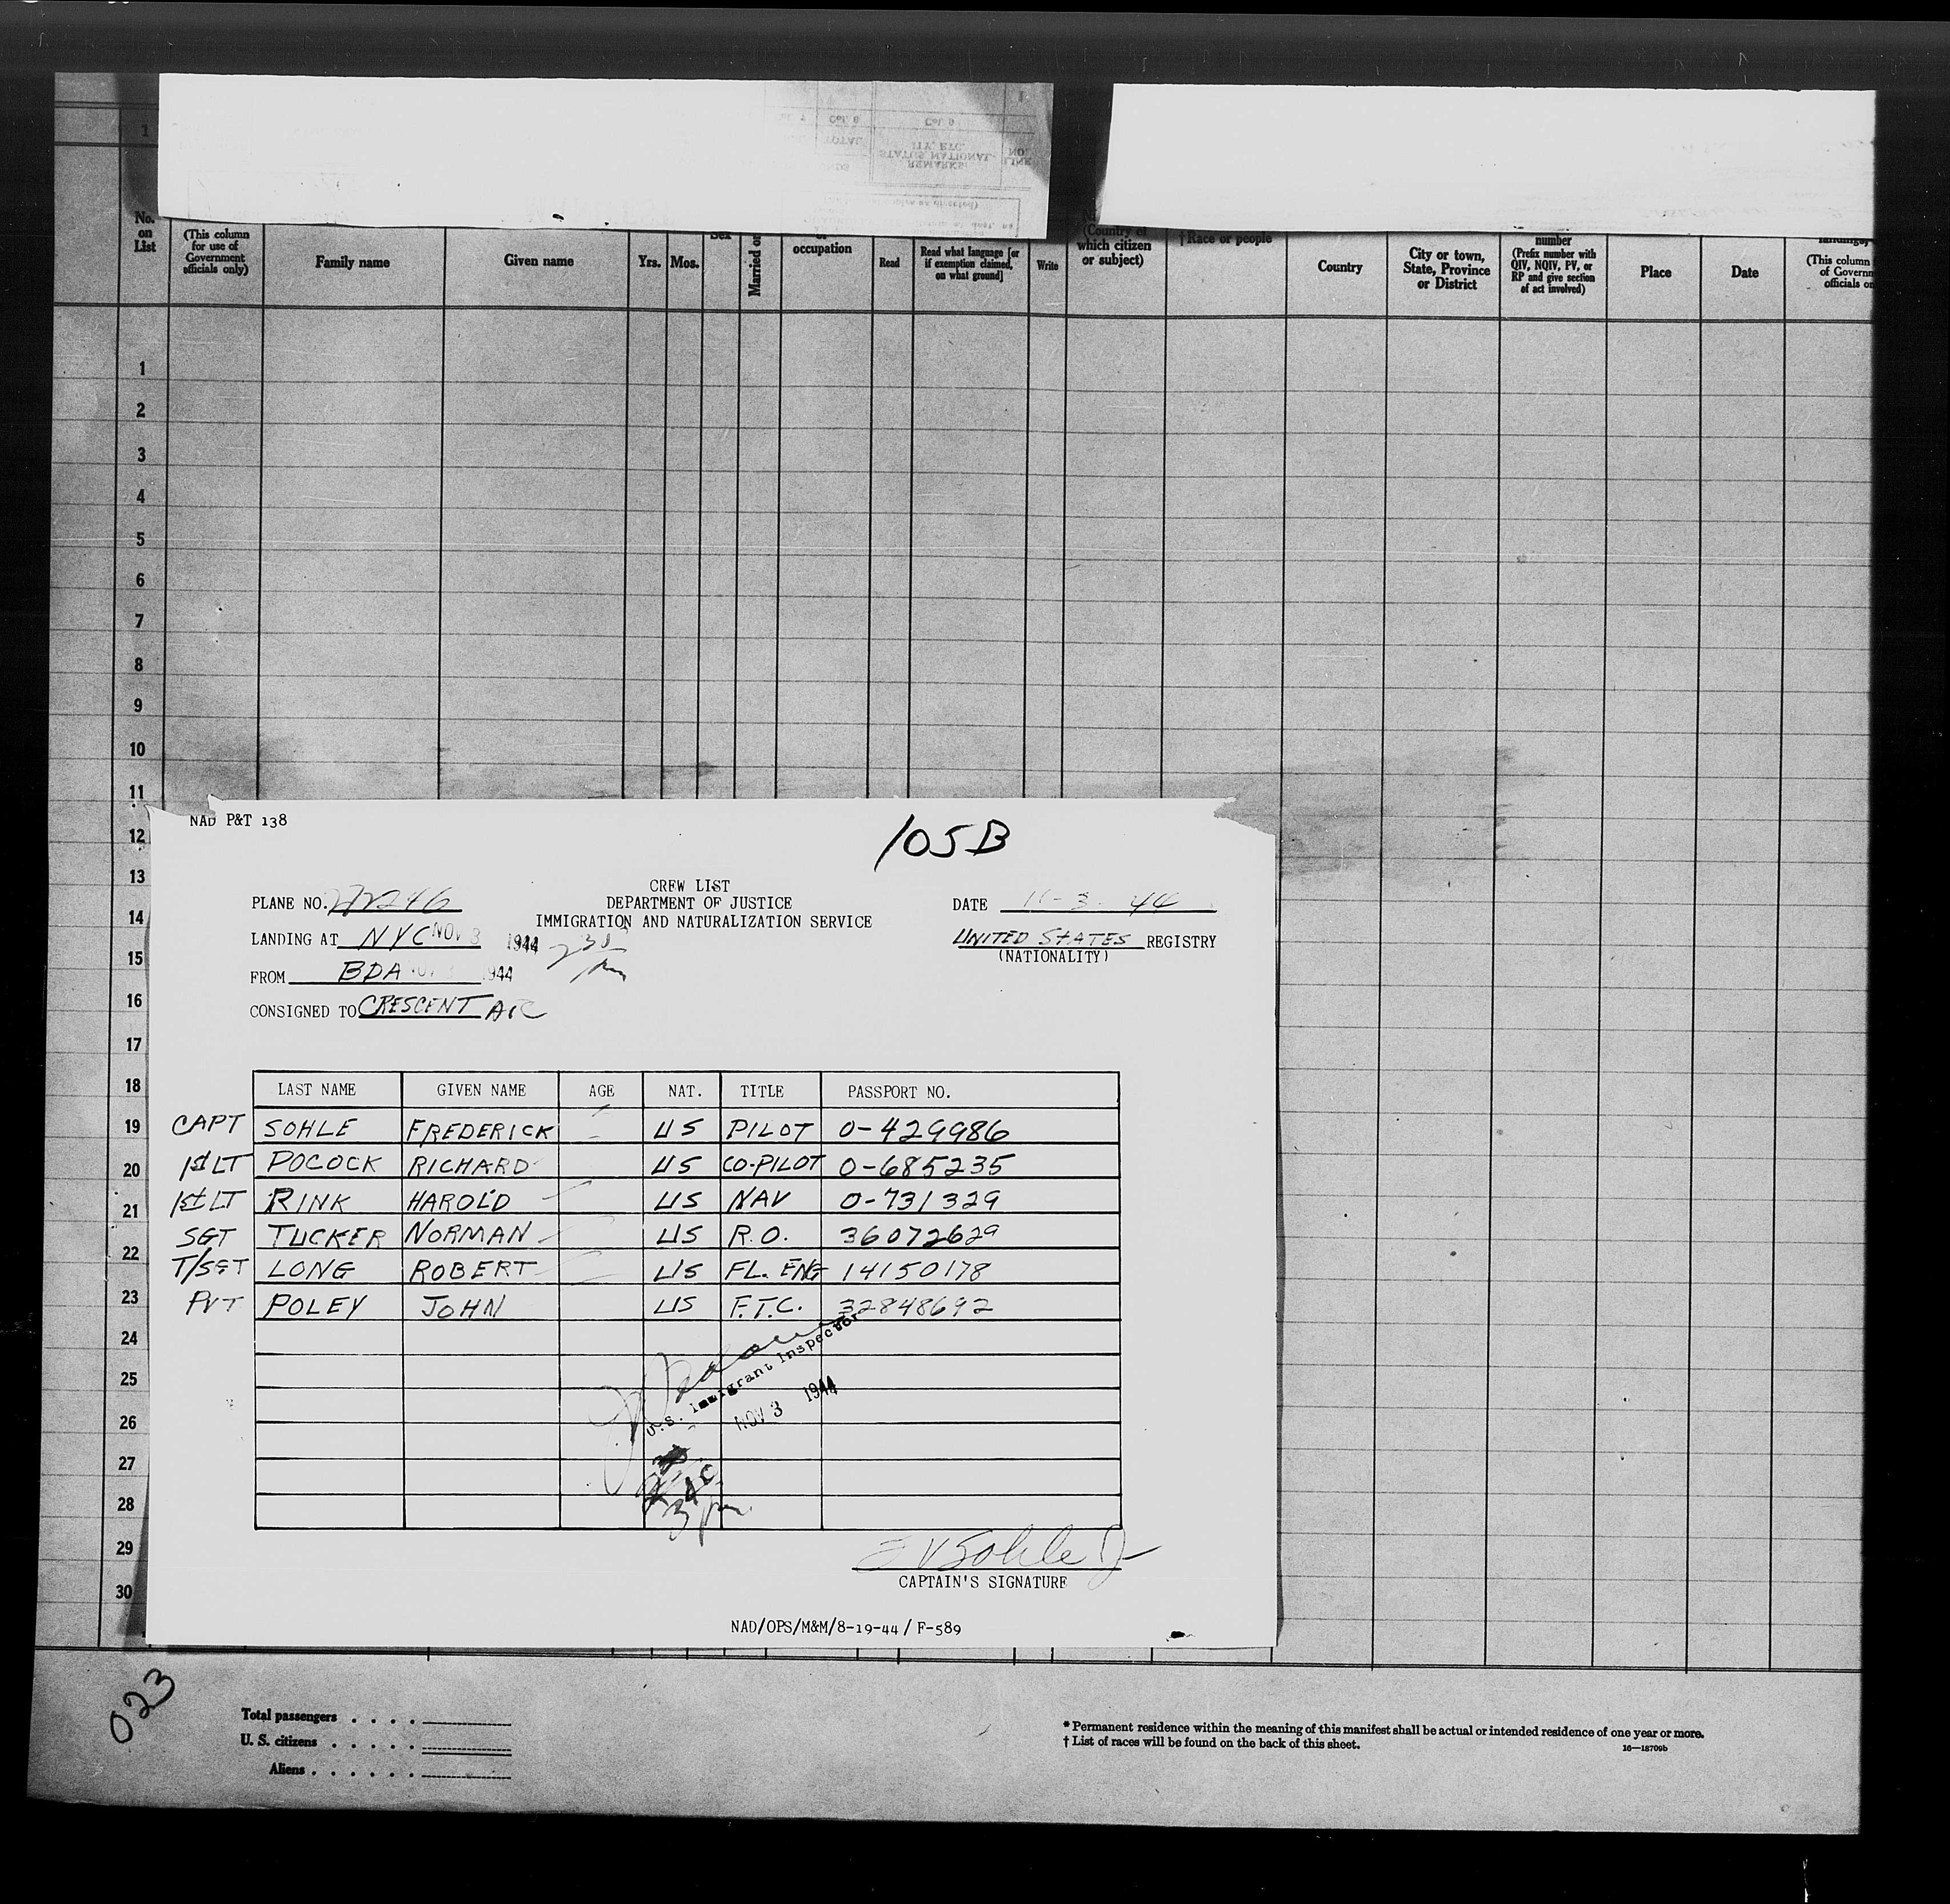 1
No.
on
List
(This column
for use of
Government
officials only)
Family name
Given name
Yrs.
Mos.
Sex
Married or
occupation
Read
Read what language [or
if exemption claimed,
on what ground]
Write
(Country of
which citizen
or subject)
† Race or people
Country
City or town,
State, Province
or District
number
(Prefix number with
QIV, NQIV, PV, or
RP and give section
of act involved)
Place
Date
(This column
of Governm
officials on
LINE
NO.
REMARKS,
STATUS NATIONAL-
ITY, ETC.
TOTAL
Col. 8
Col. 9
1
2
3
4
5
6
7
8
9
10
11
12
13
14
15
16
17
18
19
20
21
22
23
24
25
26
27
28
29
30
NAD P&T 138
105B
CREW LIST
PLANE NO. 272246 DEPARTMENT OF JUSTICE DATE 11-3-44
IMMIGRATION AND NATURALIZATION SERVICE
LANDING AT NYC NOV 3 1944 UNITED STATES REGISTRY
(NATIONALITY)
FROM BDA 1944
CONSIGNED TO CRESCENT
LAST NAME GIVEN NAME AGE NAT. TITLE PASSPORT NO.
CAPT SOHLE FREDERICK US PILOT 0-429986
1st LT POCOCK RICHARD US CO-PILOT 0-685235
1st LT RINK HAROLD US NAV 0-731329
SGT TUCKER NORMAN US R.O. 36072629
T/SGT LONG ROBERT US FL. ENG 14150178
PVT POLEY JOHN US F.T.C. 32848692
U.S. Immigrant Inspector
NOV 3 1944
3 pm
F V Sohle Jr
CAPTAIN'S SIGNATURE
NAD/OPS/M&M/8-19-44/F-589
023
Total passengers . . . .
U. S. citizens . . . . .
Aliens . . . . . .
* Permanent residence within the meaning of this manifest shall be actual or intended residence of one year or more.
† List of races will be found on the back of this sheet.
16—18709b